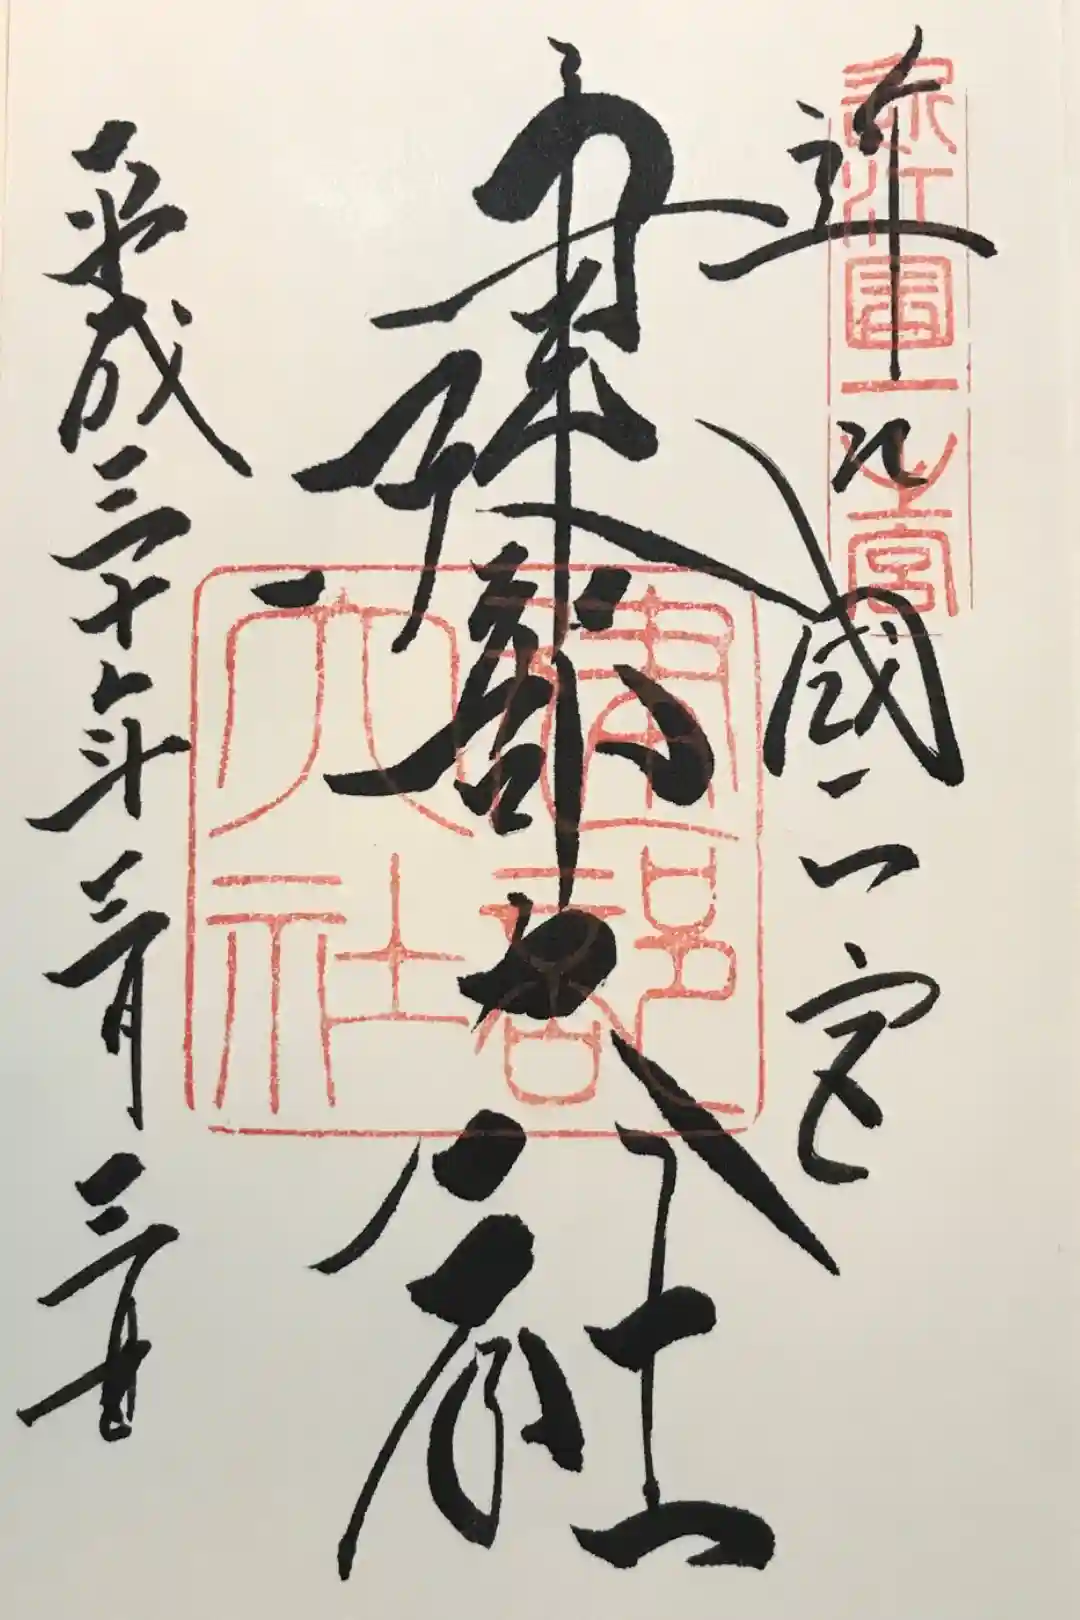 近江國一之宮
近江國一宮
建部大社
建部大社
平成三十年三月三日